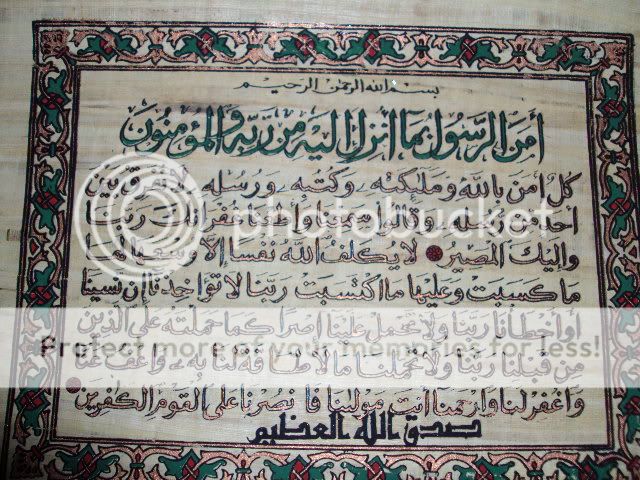 بسم الله الرحمن الرحيم
آمن الرسول بما أنزل إليه من ربه والمؤمنون
كل امن بالله وملئكته وكتبه ورسله لا نفرق بين
أحد من رسله وقالوا سمعنا وأطعنا غفرانك ربنا
photobucket
واليك المصير لا يكلف الله نفسا الا وسعها لها
ما كسبت وعليها ما اكتسبت ربنا لا تواخذنا إن نسينا
أو أخطأنا ربنا ولا تحمل علينا اصرا كما حملته على الذين
Protect more of your memories for less!
من قبلنا ربنا ولا تحملنا ما لا طاقة لنا به واعف عنا
واغفر لنا وارحمنا أنت مولينا فانصرنا على القوم الكفرين
صدق الله العظيم